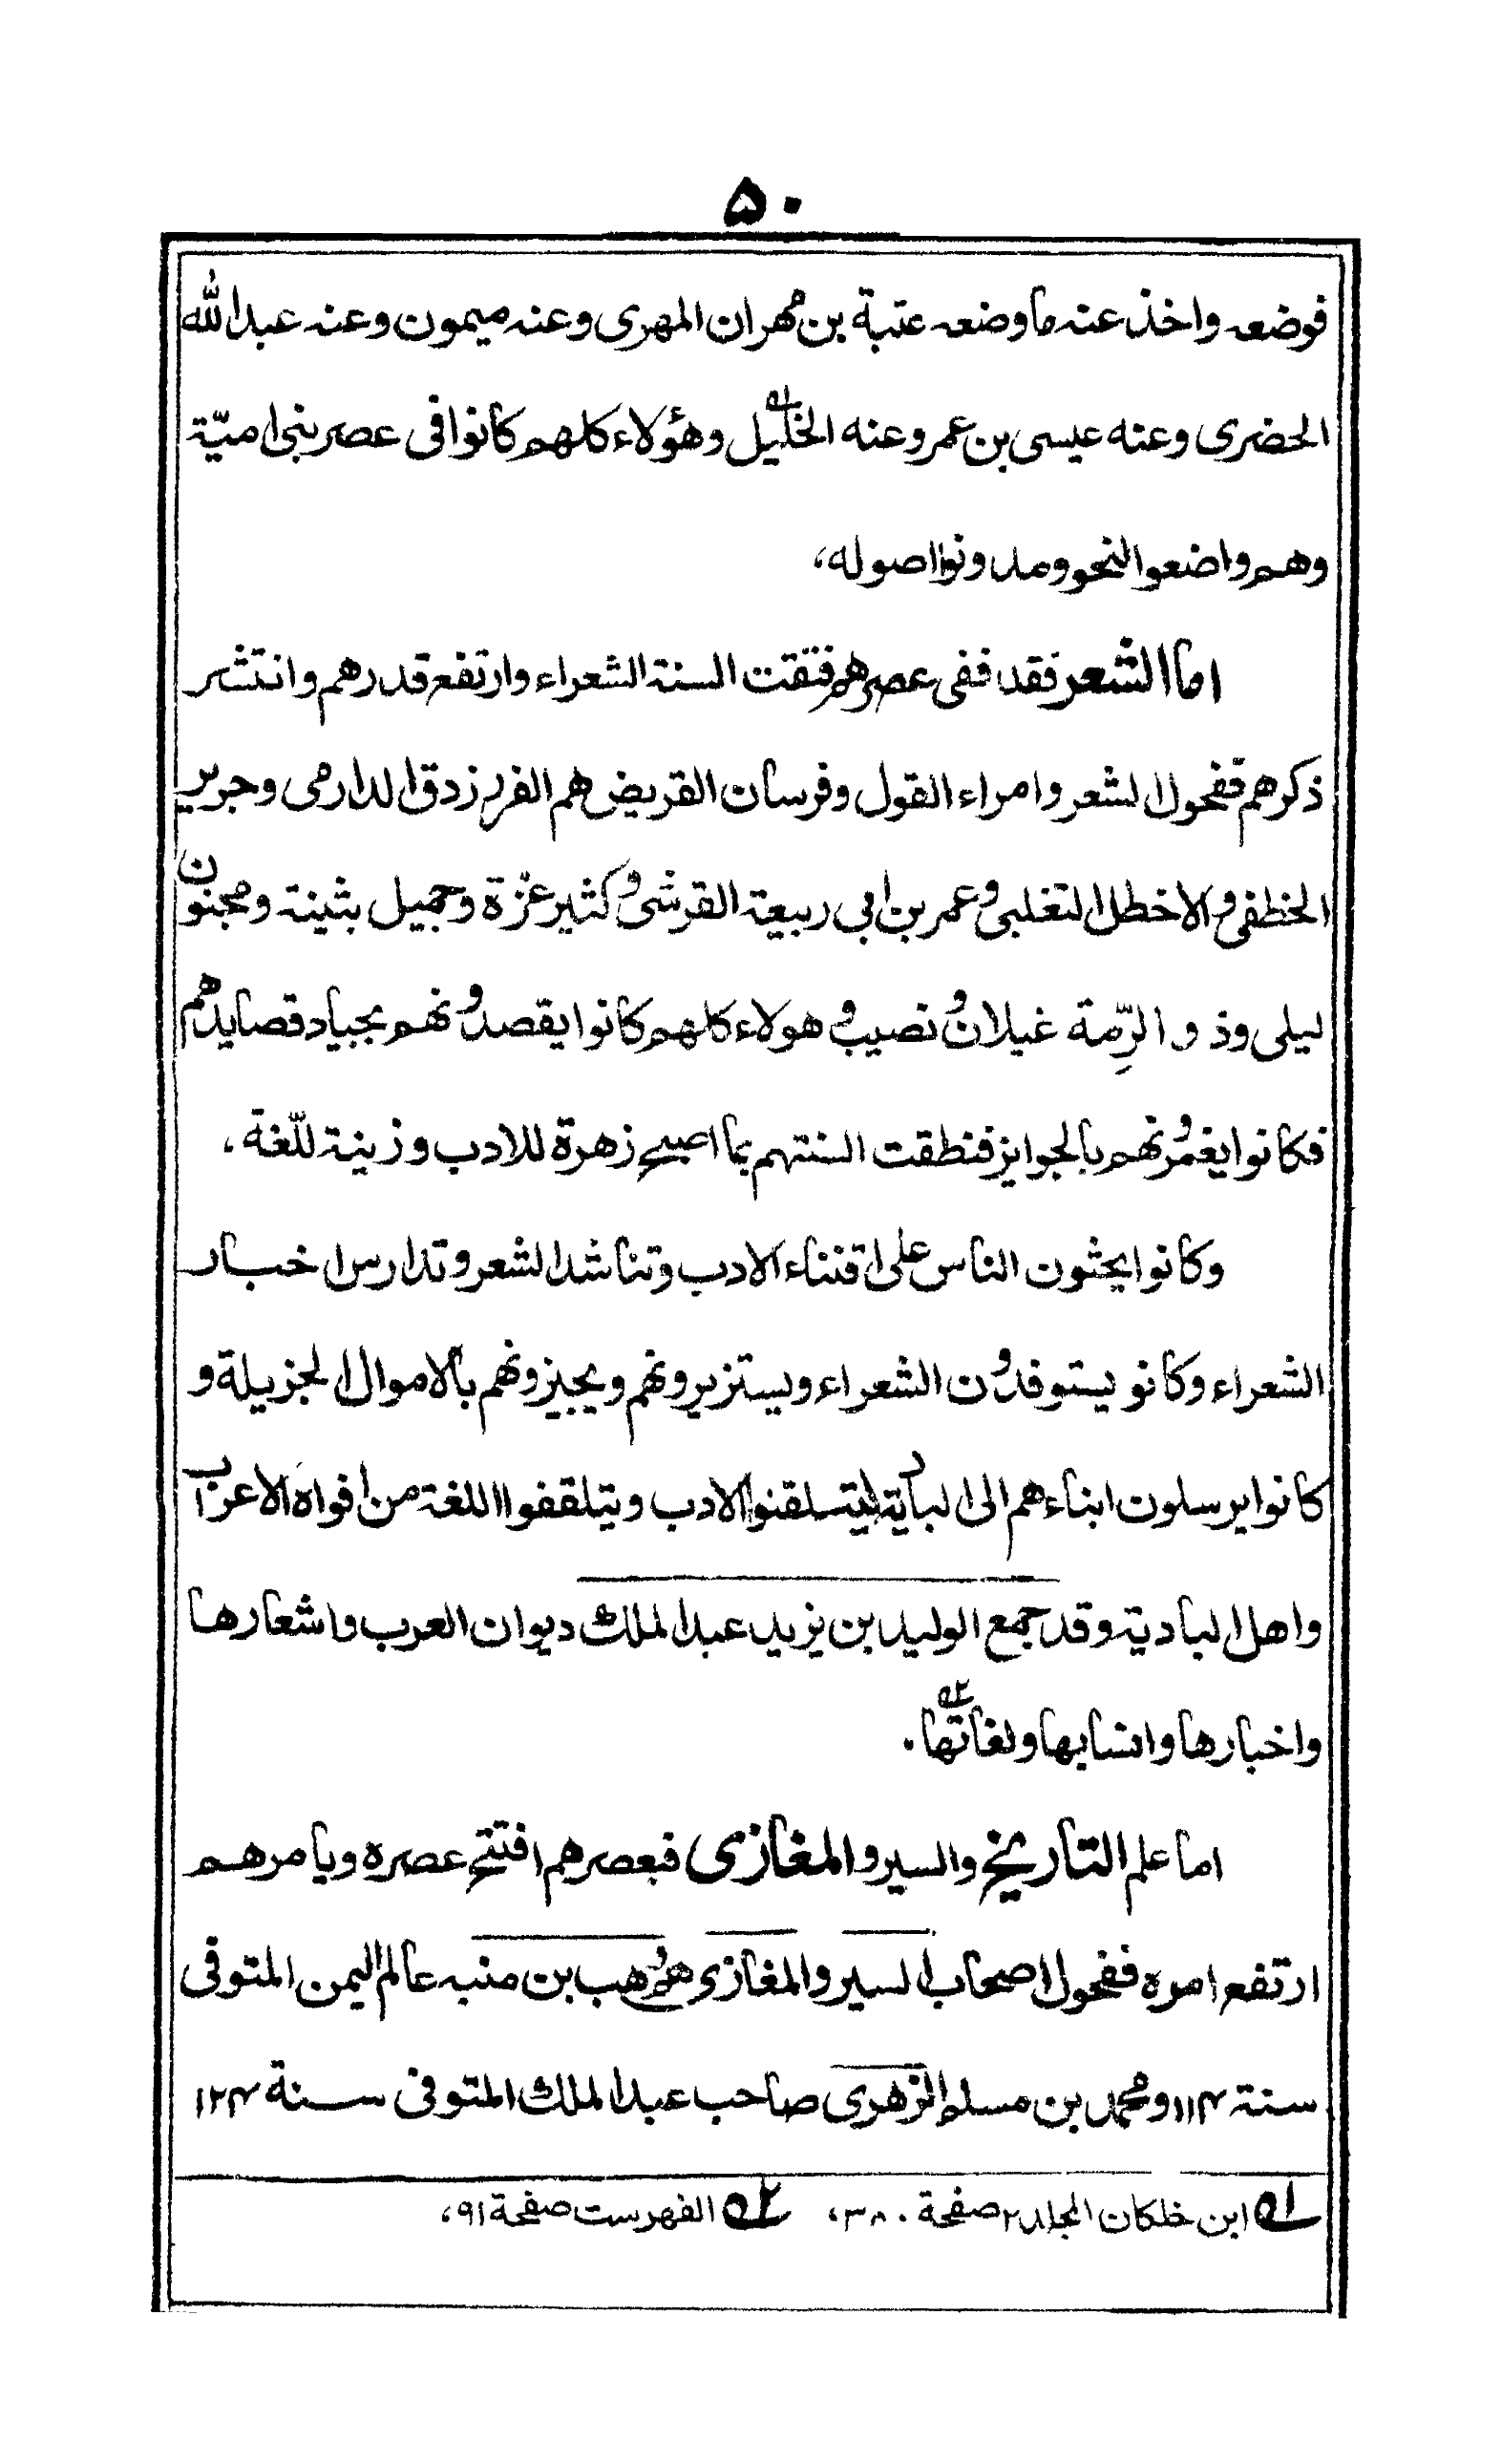 ۵۰
فوضعه واخذ عنه ما وضعه عتبة بن مهران المهری وعنه میمون وعنه عبد الله
الحضری وعنه عیسی بن عمر وعنه الخلیل۱ وهؤلاء کلهم کانوا فی عصر بنی امیّة
وهم واضعوا النحو ومدونوا اصوله،
اما الشعر فقد ففی عصرهم فتقت السنة الشعراء وارتفع قدرهم وانتشر
ذکرهم ففحول الشعر وامراء القول وفرسان القریض هم الفرزدق الدارمی وجریر
الخظفی والاخطل التغلبی وعمر بن ابی ربیعة القرشی وکثیر عزة وجمیل بثینة ومجنون
لیلی وذو الرِّمة غیلان ونصیب وهولاء کلهم کانوا یقصدونهم بجیاد قصایدهم
فکانوا یغمرونهم بالجوایز فنطقت السنتهم بما اصبح زهرة للادب وزینة للّغة،
وکانوا یحثون الناس علی اقتناء الادب وتناشد الشعر وتدارس اخبار
الشعراء وکانو یستوفدون الشعراء ویستزیرونهم ویجیزونهم بالاموال الجزیلة و
کانوا یرسلون ابناءهم الی البادیة لیتسلقنوا الادب ویتلقفوا اللغة من افواه الاعراب
واهل البادیة وقد جمع الولید بن یزید عبد الملک دیوان العرب واشعارها
واخبارها وانسابها ولغاتها۲.
اما علم التاریخ والسیر والمغازی فبعصرهم افتتح عصره وبامرهم
ارتفع امره ففحول اصحاب السیر والمغازی هو وهب بن منبه عالم الیمن المتوفی
سنة ۱۱۴ ومحمد بن مسلم الزهری صاحب عبد الملک المتوفی سنة ۱۲۴
۱ ابن خلکان المجلد ۲ صفحة ۳۸۰، ۲ الفهرست صفحة ۹۱،